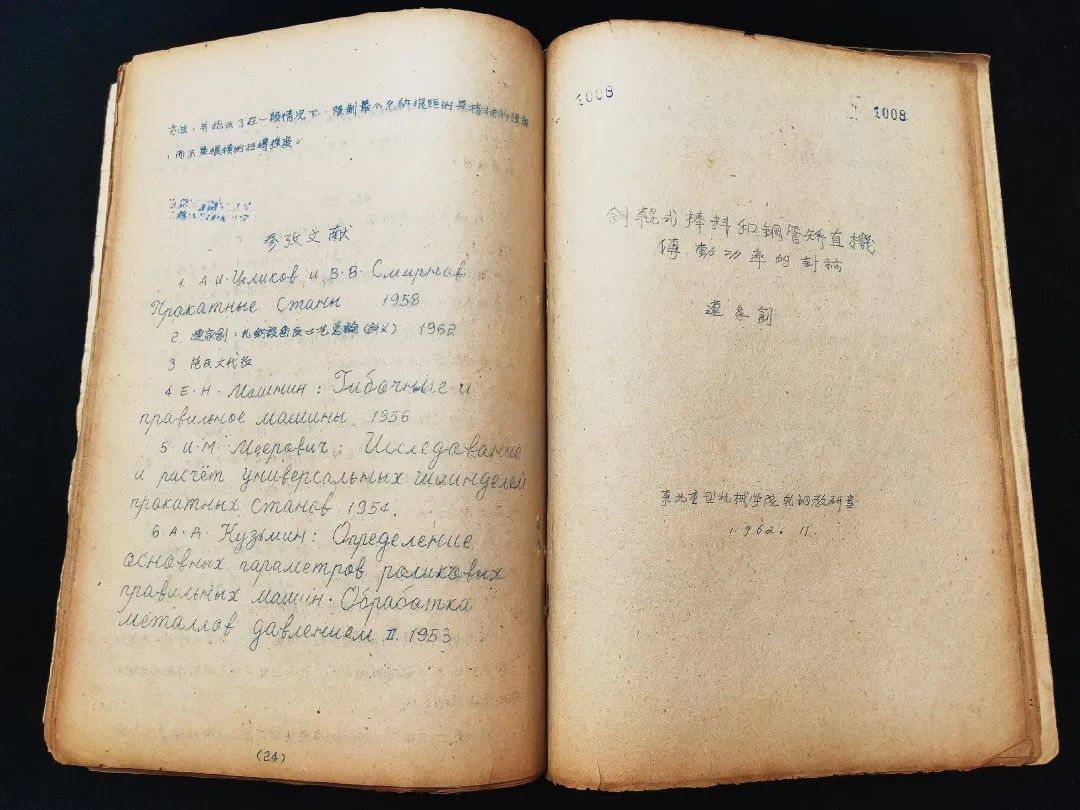 方法，并指出了在一般情况下，限制最小允许辊距的是接触
，而不是辊模的扭轉强度。
参攷文献
1 А.И.Целиков и В.В. Смирнов
Прокатные Станы 1958
2 連家創：札鋼設備及工艺 (讲义) 1962
3 范氏文代拉
4 Е.Н. Мошнин: Гибочные и
правильное машины 1956
5 И.М. Меерович: Исследование
и расчёт универсальных шпинделей
прокатных станов 1954.
6 А.А. Кузьмин: Определение
основних параметров роликовых
правильных машин. Обработка
металлов давлением II. 1953
(24)
1008
1008
斜輥式棒料和鋼管矫直機
傳動功率的討論
連家創
东北重型机械学院轧钢教研室
1962. 11.